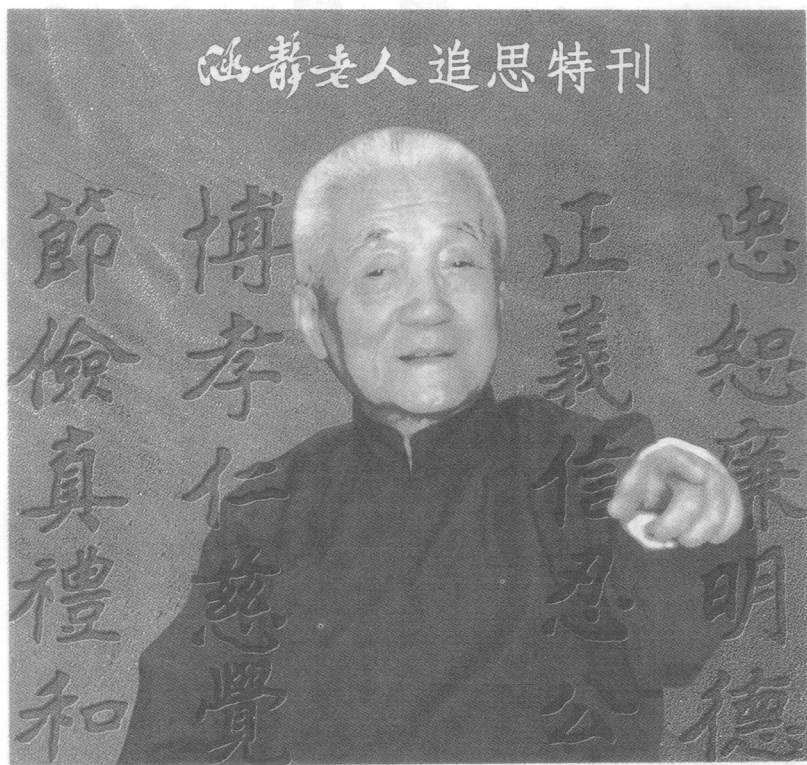 涵靜老人追思特刊
忠恕廉明德
正義信忍公
博孝仁慈覺
節儉真禮和